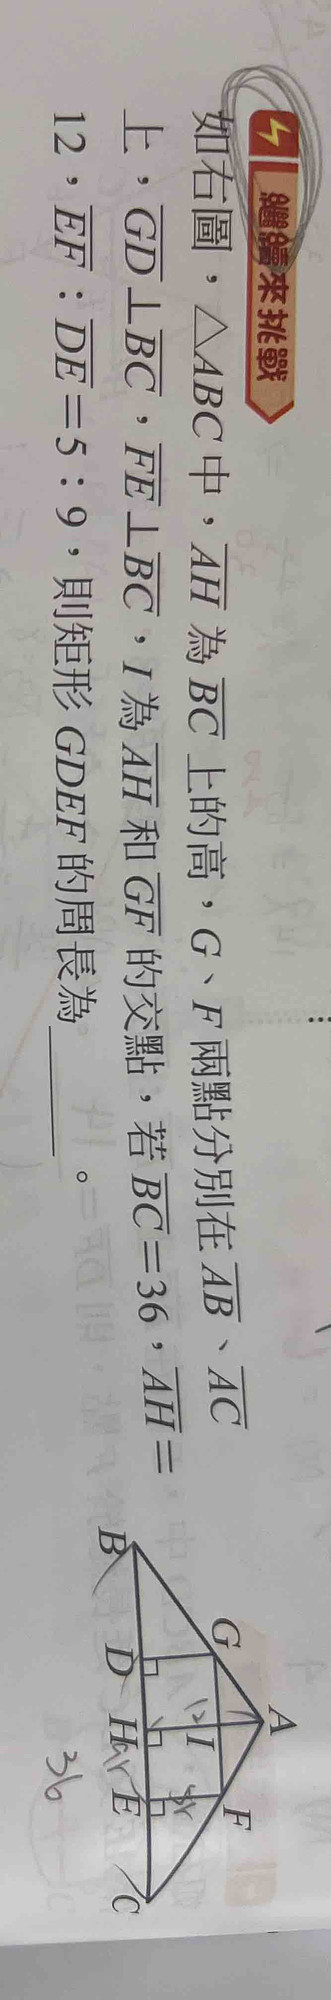 繼續來挑戰
如右圖，△ABC中，AH為BC上的高，G、F兩點分別在AB、AC
上，GD⊥BC，FE⊥BC，I為AH和GF的交點，若BC=36，AH=
12，EF：DE=5：9，則矩形GDEF的周長為＿＿＿。
A
G
F
I
12
5r
B
D
H
9r
E
C
36